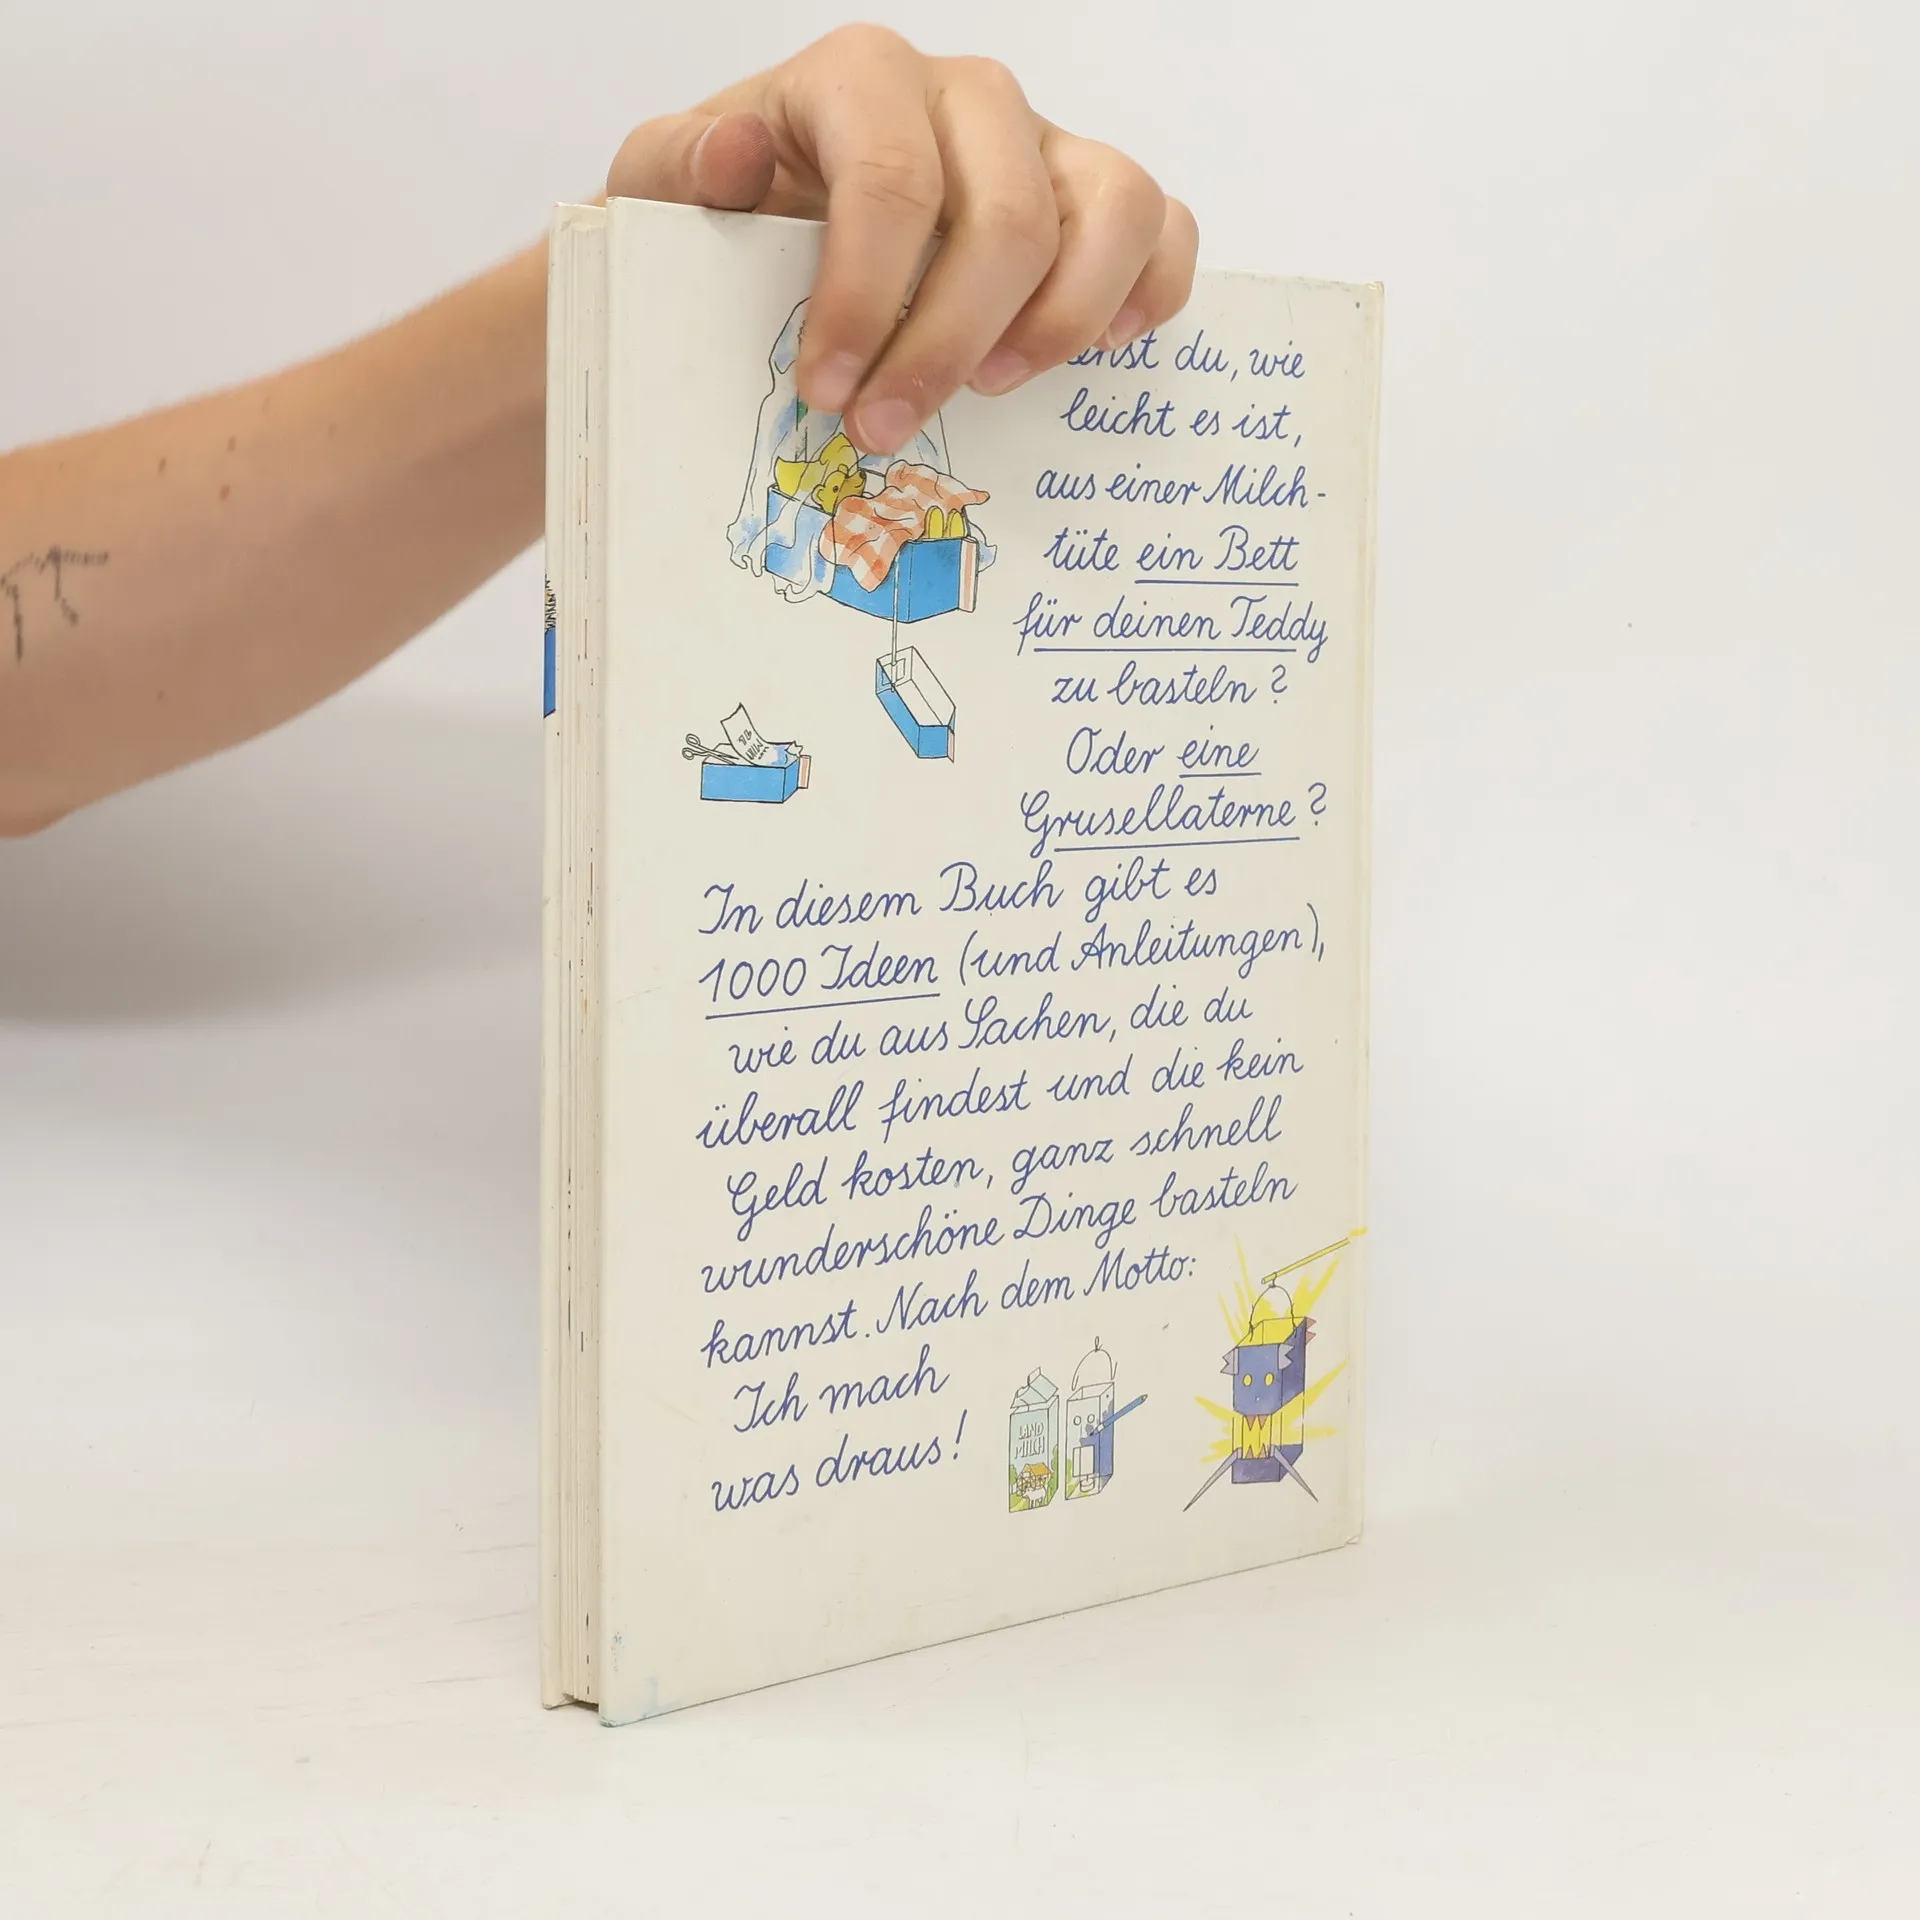 du, wie
leicht es ist,
aus einer Milch-
tüte ein Bett
für deinen Teddy
zu basteln?
Oder eine
Grusellaterne?
In diesem Buch gibt es
1000 Ideen (und Anleitungen),
wie du aus Sachen, die du
überall findest und die kein
Geld kosten, ganz schnell
wunderschöne Dinge basteln
kannst. Nach dem Motto:
Ich mach
was draus!
LAND
MILCH